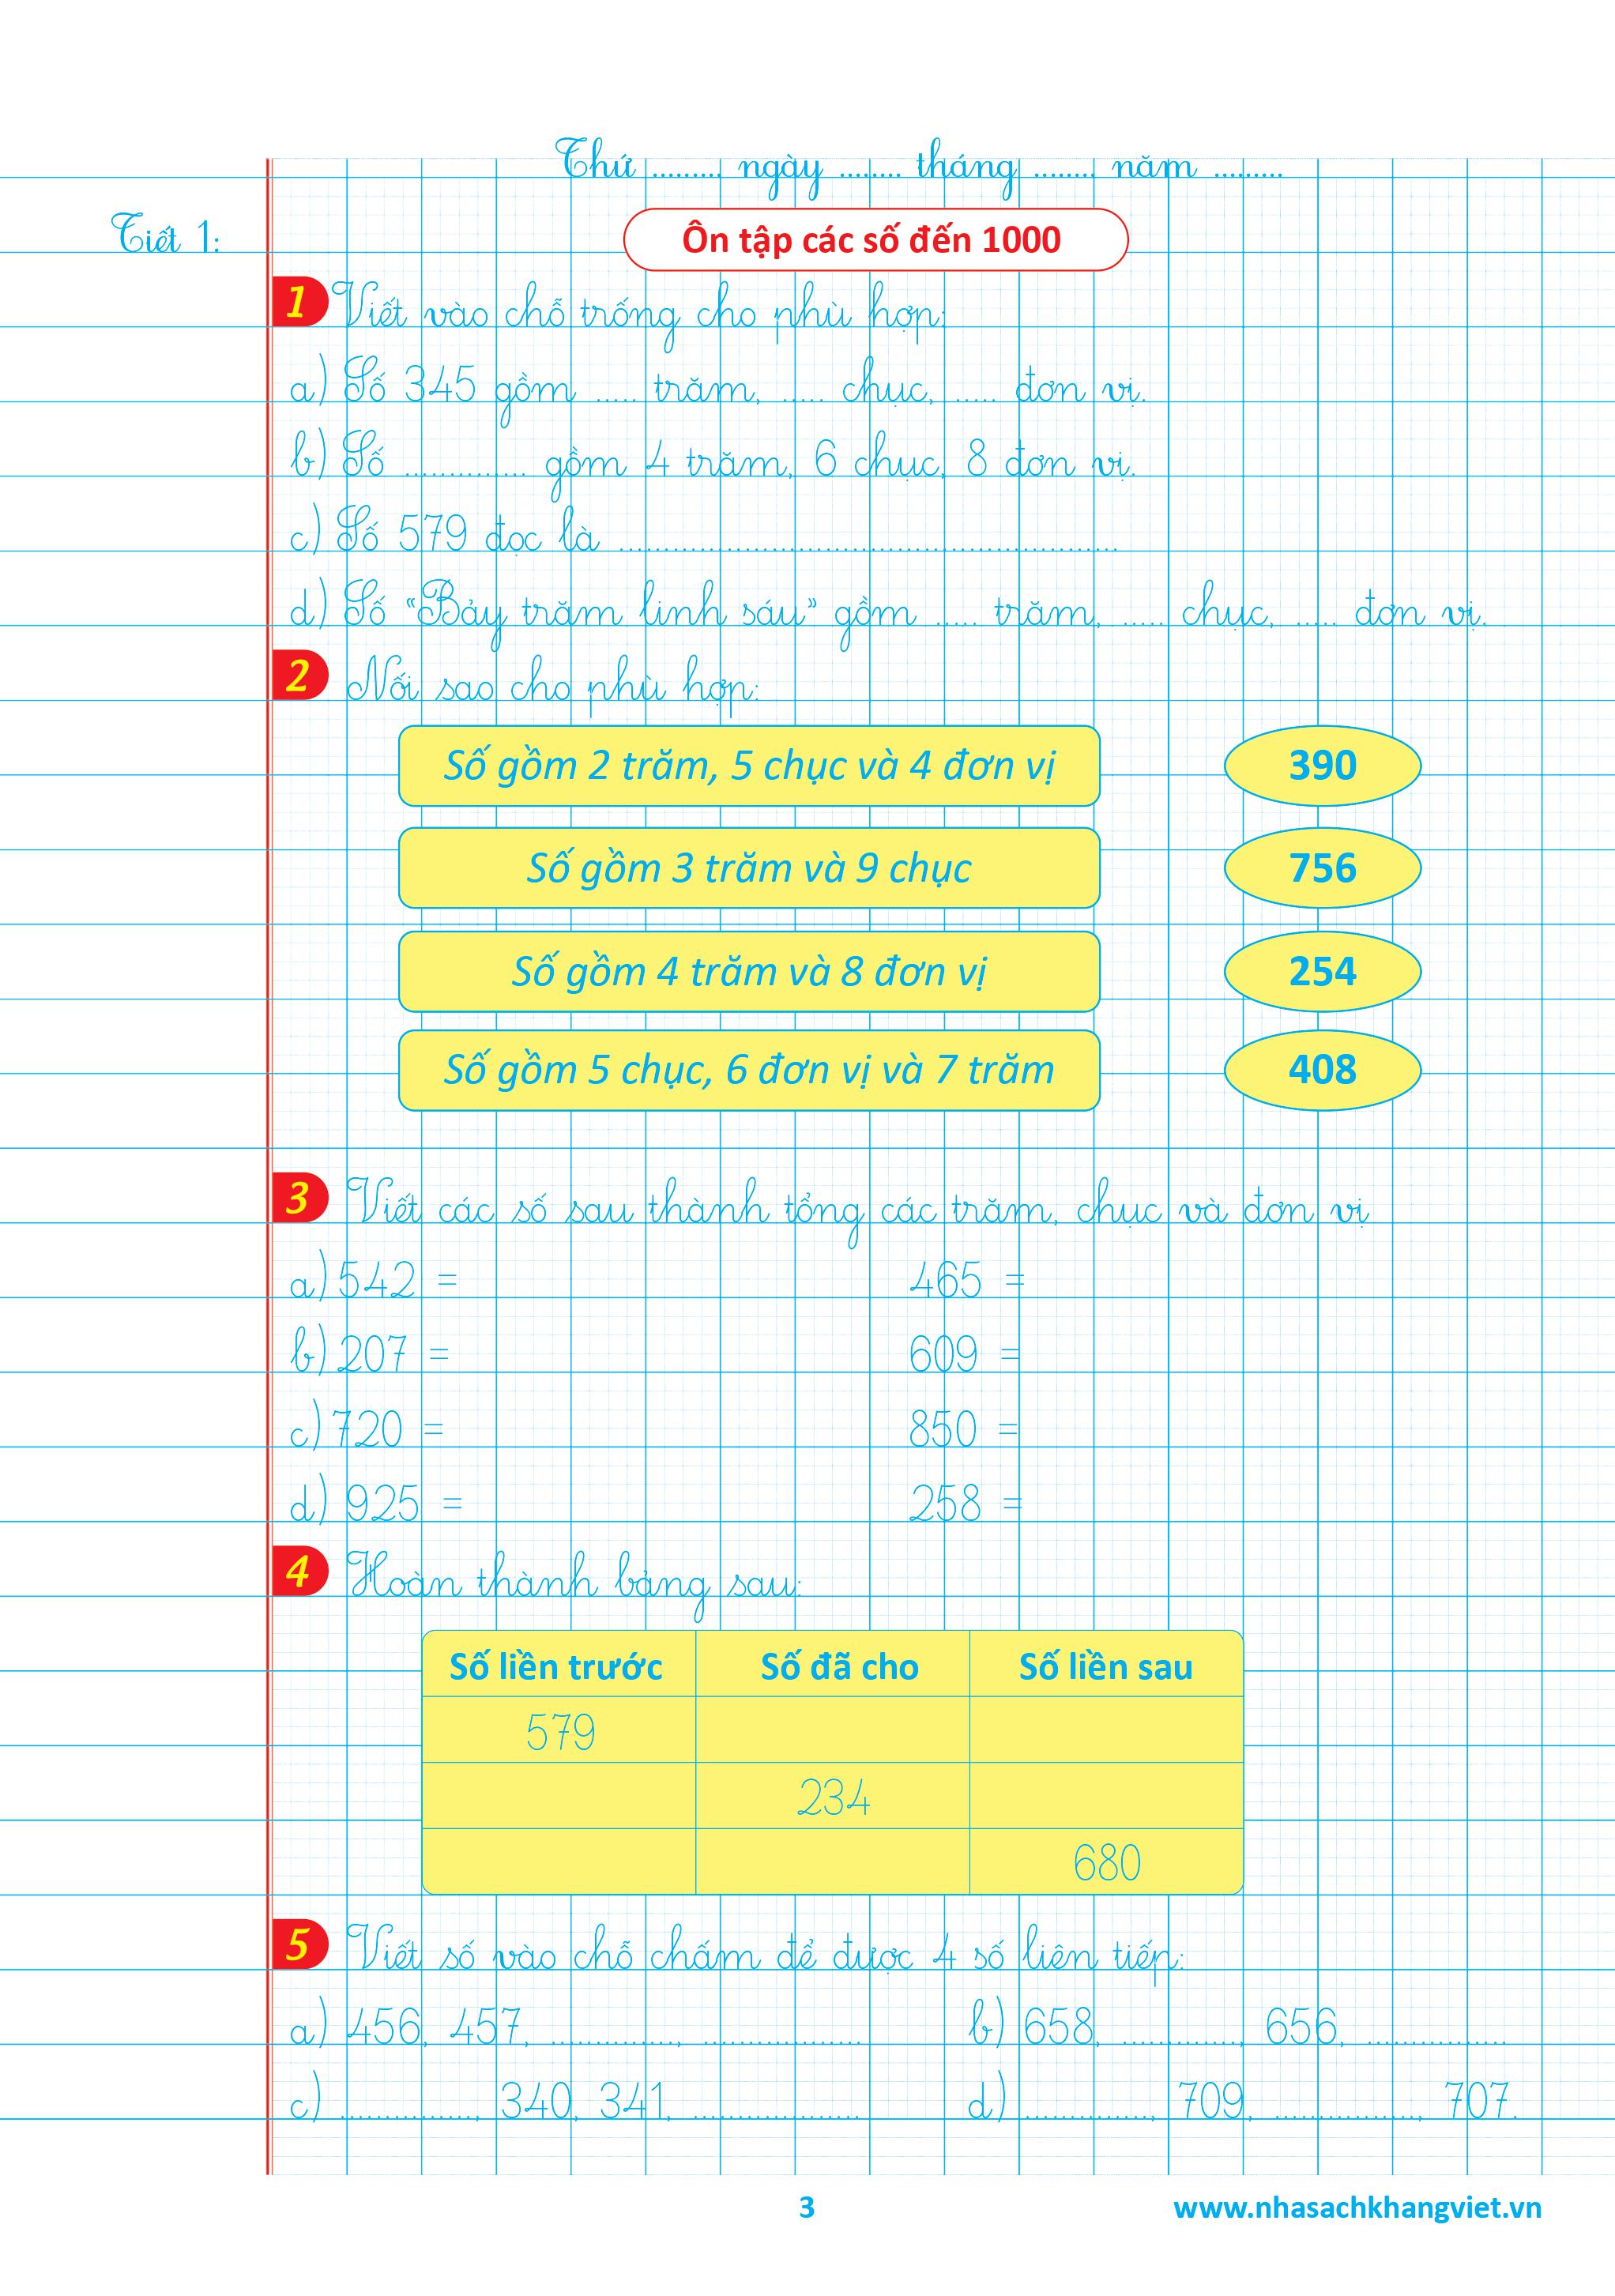 Thứ ......... ngày ........ tháng ........ năm .........
Tiết 1:
Ôn tập các số đến 1000
1 Viết vào chỗ trống cho phù hợp:
a) Số 345 gồm ..... trăm, ..... chục, ..... đơn vị.
b) Số .............. gồm 4 trăm, 6 chục, 8 đơn vị.
c) Số 579 đọc là ........................................................
d) Số “Bảy trăm linh sáu” gồm ..... trăm, ..... chục, ..... đơn vị.
2 Nối sao cho phù hợp:
Số gồm 2 trăm, 5 chục và 4 đơn vị 390
Số gồm 3 trăm và 9 chục 756
Số gồm 4 trăm và 8 đơn vị 254
Số gồm 5 chục, 6 đơn vị và 7 trăm 408
3 Viết các số sau thành tổng các trăm, chục và đơn vị
a) 542 = 465 =
b) 207 = 609 =
c) 720 = 850 =
d) 925 = 258 =
4 Hoàn thành bảng sau:
Số liền trước Số đã cho Số liền sau
579
234
680
5 Viết số vào chỗ chấm để được 4 số liên tiếp:
a) 456, 457, .............., .................. b) 658, ............., 656, ................
c) ..............., 340, 341, ................... d) .............., 709, ................, 707.
3 www.nhasachkhangviet.vn